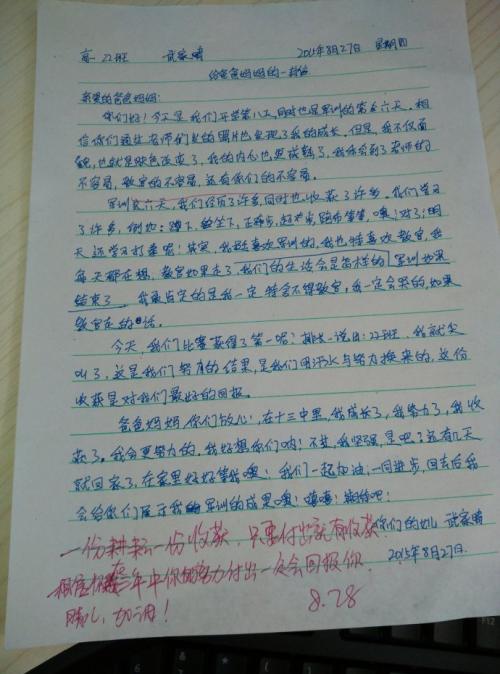 高一22班 武家晴 2015年8月27日 星期四
给爸爸妈妈的一封信
亲爱的爸爸妈妈:
你们好!今天是我们开学第八天,同时也是军训的第六天。相
信你们通过老师们发的照片也发现了我的成长。但是,我不仅面
貌,也就是肤色改变了,我的内心也更成熟了,我体会到了老师的
不容易,教官的不容易,还有你们的不容易。
军训这六天,我们经历了许多,同时也收获了许多。我们学习
了许多,例如:蹲下、坐下、正步、起步走、跑步等等,噢!对了!明
天还学习打军拳!其实,我挺喜欢军训的,我也特喜欢教官,我
每天都在想,教官如果走了,我们的生活会是怎样的,军训如果
结束了。我最肯定的是我一定特舍不得教官,我一定会哭的,如果
教官走的话。
今天,我们比赛获得了第一呢!排长一说出:22班,我就尖
叫了,这是我们努力的结果,是我们用汗水与努力换来的,这份
收获是对我们最好的回报。
爸爸妈妈,你们放心,在十三中里,我成长了,我努力了,我收
获了。我会更努力的,我好想你们呐!不过,我坚强,是吧?还有几天
就回家了,在家里好好等我噢!我们一起加油,一同进步,回去后我
会给你们展示我的军训的成果噢!嘻嘻!期待吧!
你们的女儿 武家晴
2015年8月27日
一份耕耘一份收获,只要付出就有收获
相信在三年中你的努力付出一定会回报你.
晴儿,加油!
8.28